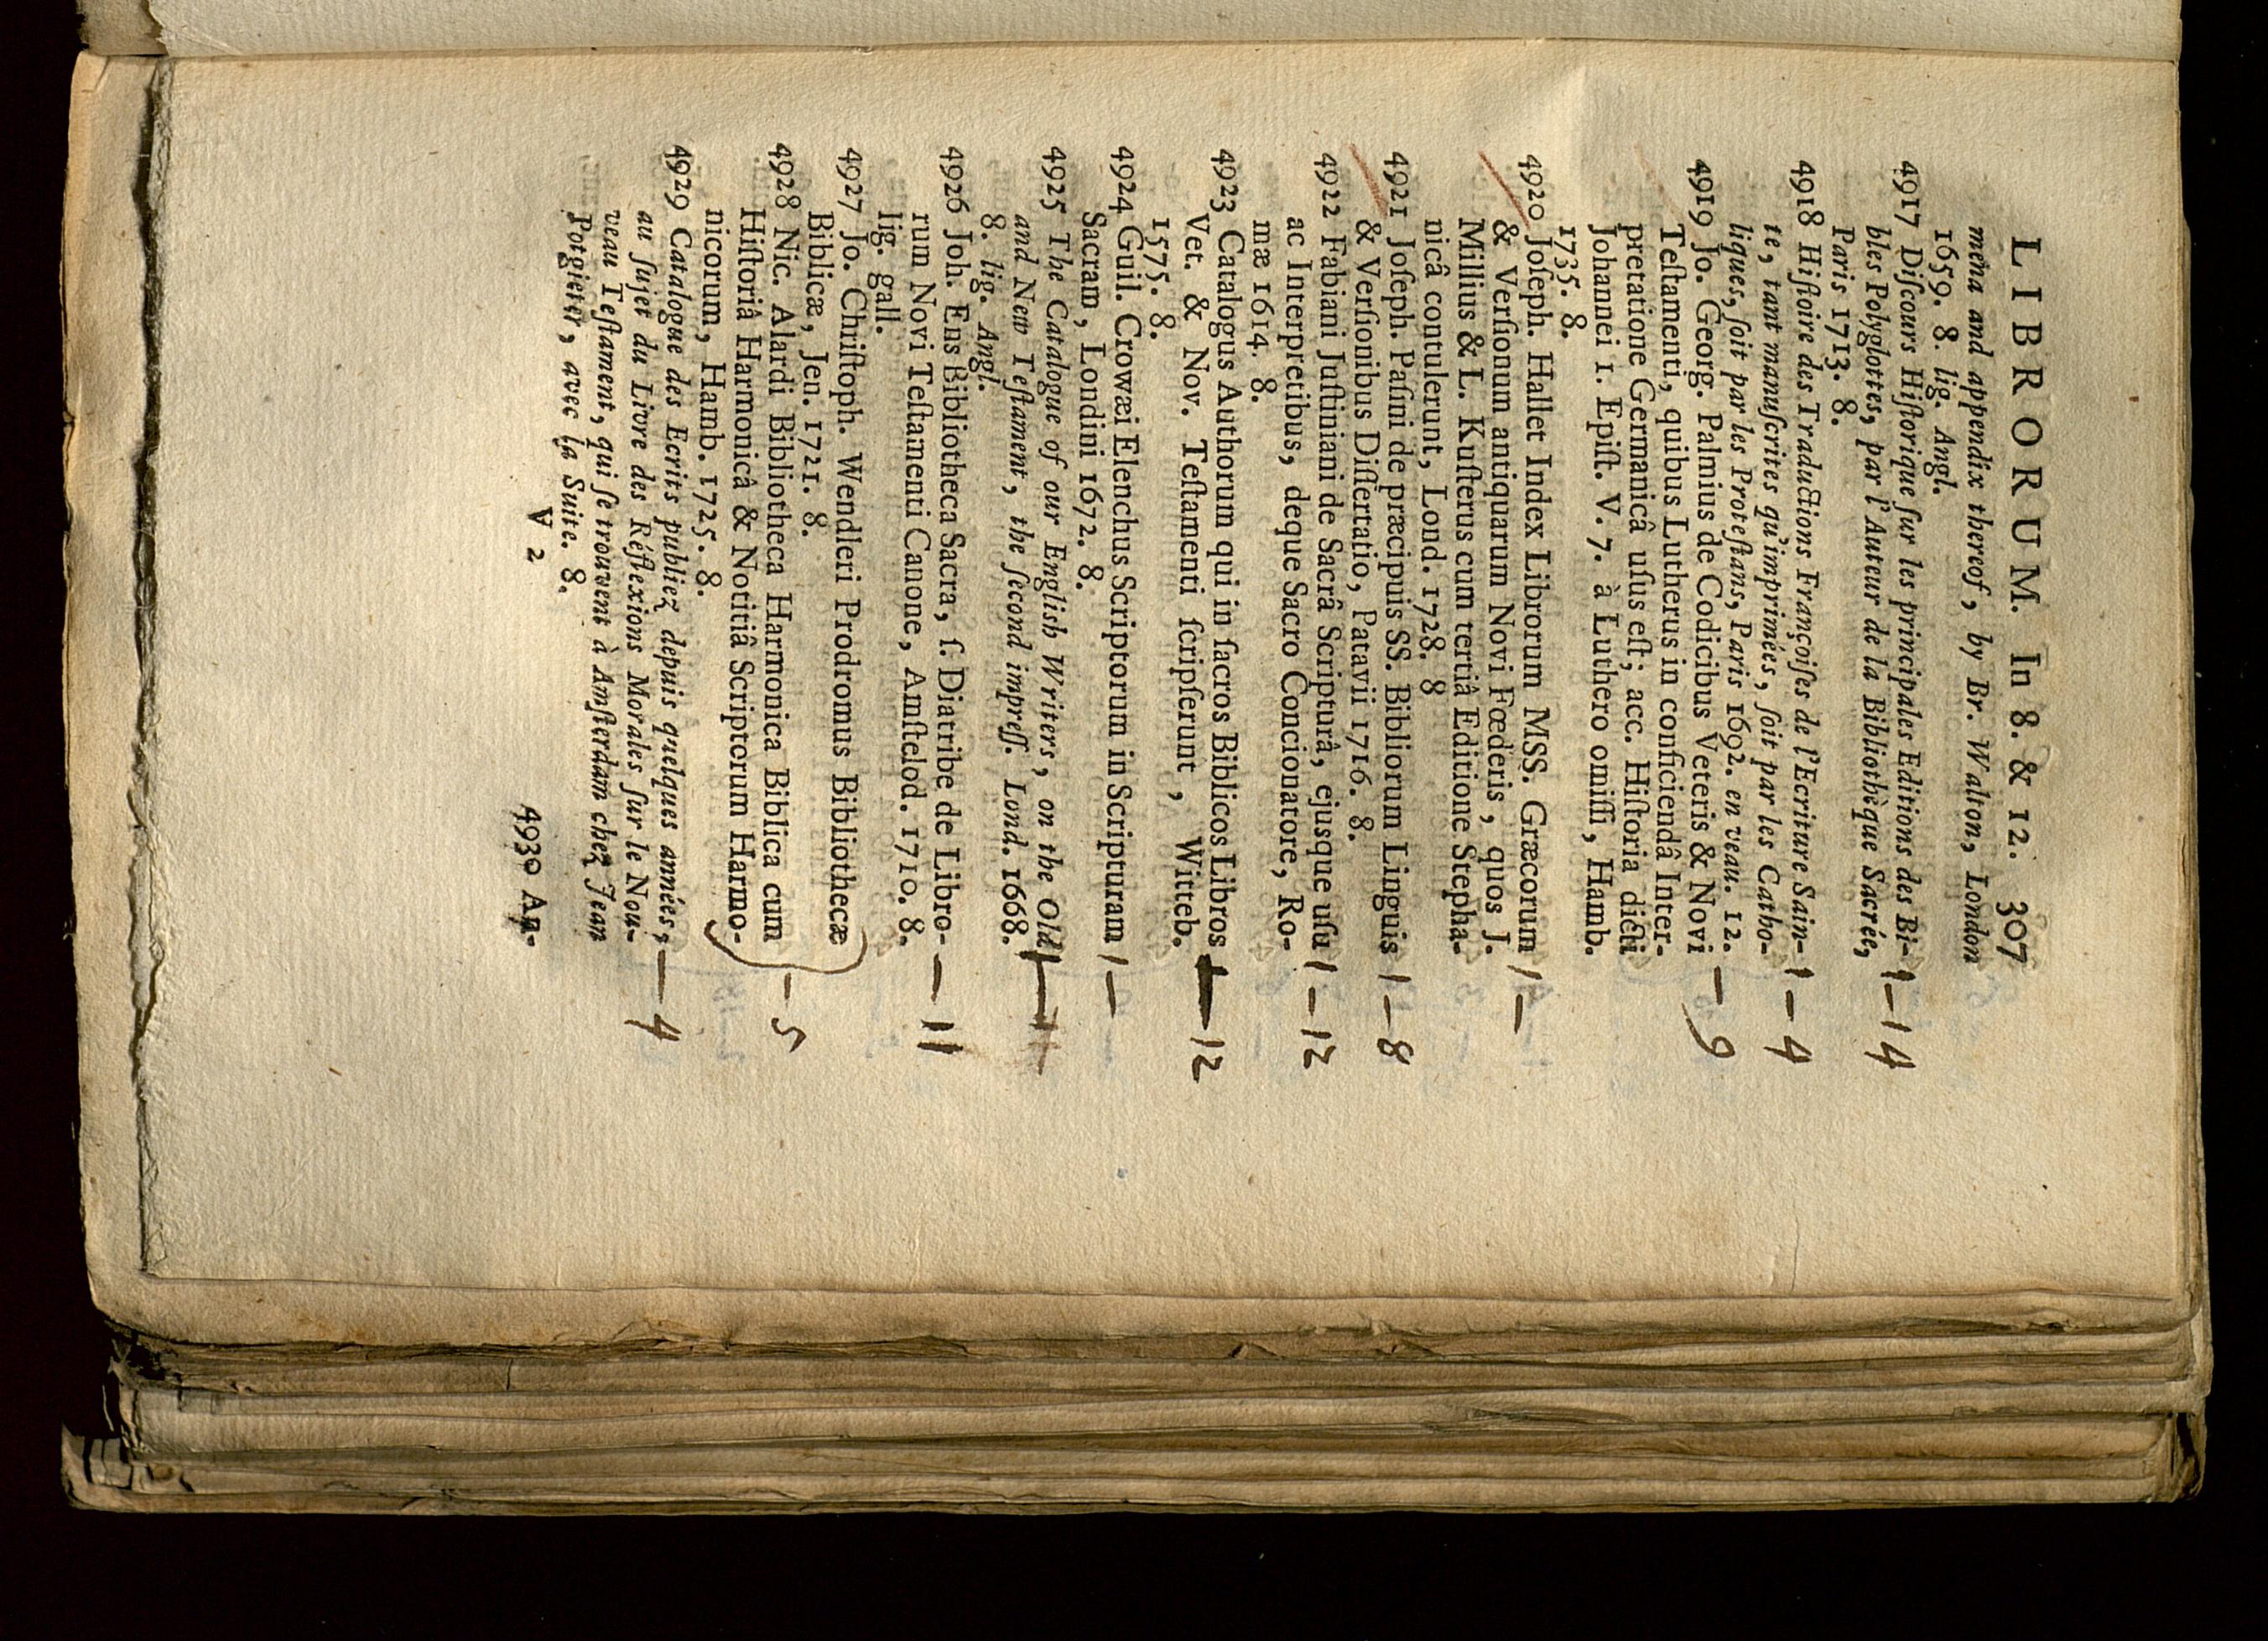 LIBRORUM. In 8. & 12. 307
mena and appendix thereof, by Br. Walton, London
1659. 8. lig. Angl.
4917 Diſcours Hiſtorique ſur les principales Editions des Bi- 1—14
bles Polyglottes, par l'Auteur de la Bibliothèque Sacrée,
Paris 1713. 8.
4918 Hiſtoire des Traductions Françoiſes de l'Ecriture Sain- 1—4
te, tant manuſcrites qu'imprimées, ſoit par les Catho-
liques, ſoit par les Proteſtans, Paris 1692. en veau. 12.
4919 Jo. Georg. Palmius de Codicibus Veteris & Novi —9
Teſtamenti, quibus Lutherus in conficiendâ Inter-
pretatione Germanicâ uſus eſt; acc. Hiſtoria dicti
Johannei 1. Epiſt. V. 7. à Luthero omiſſi, Hamb.
1735. 8.
4920 Joſeph. Hallet Index Librorum MSS. Græcorum 1—
& Verſionum antiquarum Novi Fœderis, quos J.
Millius & L. Kuſterus cum tertiâ Editione Stepha-
nicâ contulerunt, Lond. 1728. 8
4921 Joſeph. Paſini de præcipuis SS. Bibliorum Linguis 1—8
& Verſionibus Diſſertatio, Patavii 1716. 8.
4922 Fabiani Juſtiniani de Sacrâ Scripturâ, ejusque uſu 1—12
ac Interpretibus, deque Sacro Concionatore, Ro-
mæ 1614. 8.
4923 Catalogus Authorum qui in ſacros Biblicos Libros —12
Vet. & Nov. Teſtamenti ſcripſerunt, Witteb.
1575. 8.
4924 Guil. Crowæi Elenchus Scriptorum in Scripturam 1—
Sacram, Londini 1672. 8.
4925 The Catalogue of our English Writers, on the Old
and New Teſtament, the ſecond impreſſ. Lond. 1668.
8. lig. Angl.
4926 Joh. Ens Bibliotheca Sacra, ſ. Diatribe de Libro- —11
rum Novi Teſtamenti Canone, Amſtelod. 1710. 8.
lig. gall.
4927 Jo. Chriſtoph. Wendleri Prodromus Bibliothecæ
Biblicæ, Jen. 1721. 8.
4928 Nic. Alardi Bibliotheca Harmonica Biblica cum —5
Hiſtoriâ Harmonicâ & Notitiâ Scriptorum Harmo-
nicorum, Hamb. 1725. 8.
4929 Catalogue des Ecrits publiez depuis quelques années, —4
au ſujet du Livre des Réflexions Morales ſur le Nou-
veau Teſtament, qui ſe trouvent à Amſterdam chez Jean
Potgieter, avec la Suite. 8.
V 2
4930 An-